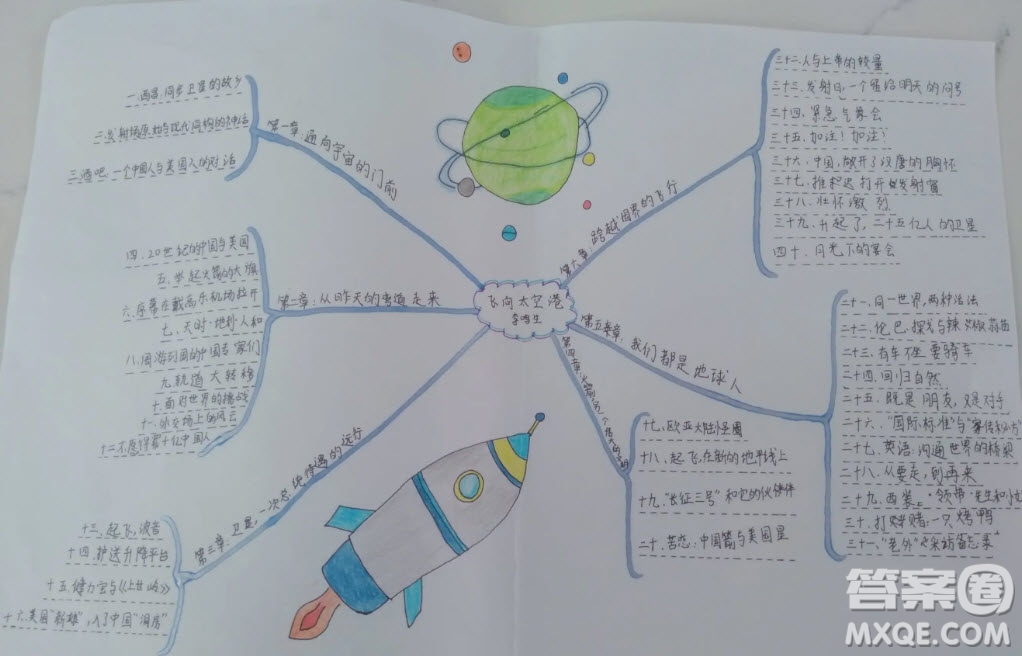 飞向太空港
李鸣生
第一章：通向宇宙的门前
一.西昌：同步卫星的故乡
二.发射场原始与现代同构的神话
三.酒吧，一个中国人与美国人的对话
第二章：从昨天的弯道走来
四.20世纪的中国与美国
五.举起火箭的大旗
六.序幕在戴高乐机场拉开
七.天时·地利·人和
八.周游列国的中国专家们
九.轨道大转移
十.面对世界的挑战
十一.外交场上的风云
十二.不愿伴君十亿中国人
第三章：卫星，一次总统待遇的远行
十三.起飞，波音
十四.护送升降平台
十五.健力宝与《上甘岭》
十六.美国"新娘"，入了中国"洞房"
第四章：火箭，另一个
十七.欧亚大陆怪圈
十八.起飞，在新的地平线上
十九."长征三号"和它的伙伴
二十.苦恋：中国箭与美国星
第五章：我们都是地球人
二十一.同一世界，两种活法
二十二.伦巴.探戈与辣椒.蒜苗
二十三.有车不坐要骑车
二十四.回归自然
二十五.既是朋友，又是对手
二十六."国际标准"与
二十七.英语：沟通世界的桥梁
二十八.从要走，到再来
二十九.西装.领带.先生和小
三十.打赌：一只烤鸭
三十一."老外"采访备忘录
第六章：跨越国界的飞行
三十二.人与上帝的较量
三十三.发射日，一个留给明天的问号
三十四.紧急气象会
三十五.加注！加注！
三十六.中国，敞开了汉唐的胸怀
三十七.推迟打开发射窗
三十八.壮怀激烈
三十九.升起了，二十五亿人的卫星
四十.月光下的宴会
答案圈
MXQE.COM